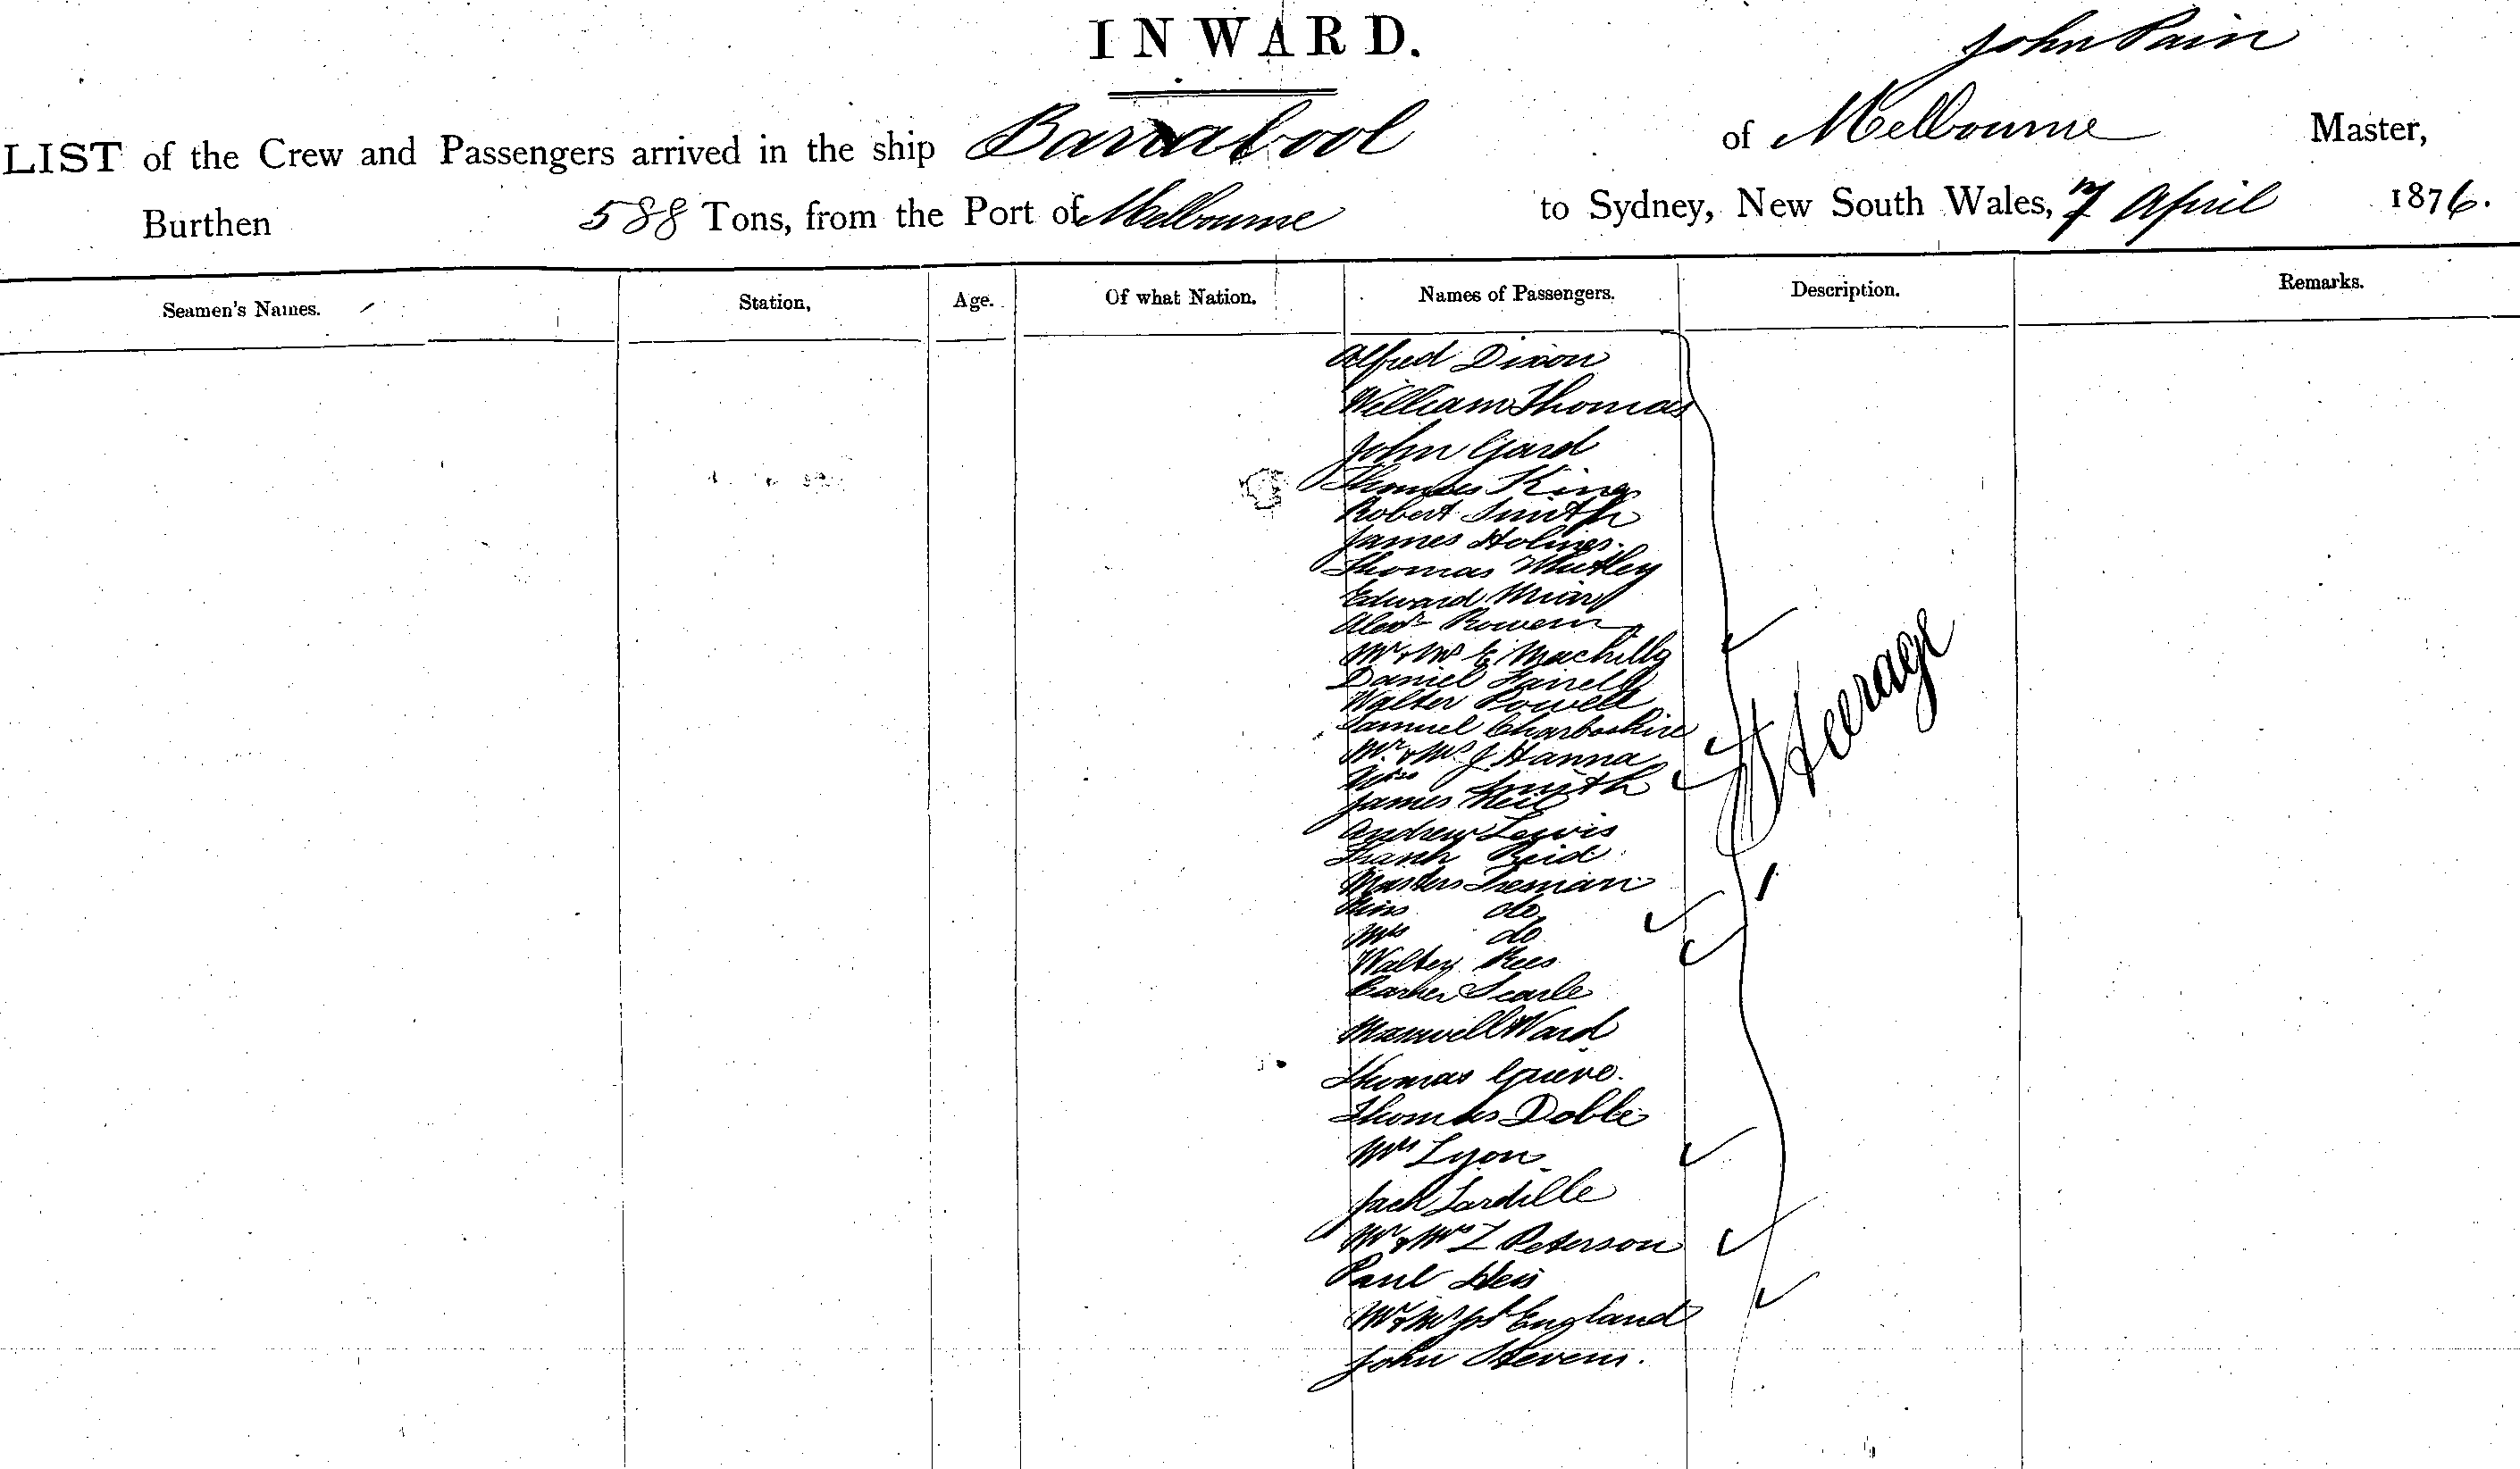 INWARD.
John Pain
LIST of the Crew and Passengers arrived in the ship Barrabool of Melbourne Master,
Burthen 588 Tons, from the Port of Melbourne to Sydney, New South Wales, 7 April 1876.
Seamen's Names. Station, Age. Of what Nation. Names of Passengers. Description. Remarks.
Alfred Dixon
William Thomas
John Gard
Thomas King
Robert Smith
James Holmes.
Thomas Whitley
Edward
Alexr
Mr & Mrs E.
Daniel Farrell
Walter Powell
Samuel
Mr & Mrs J. Hanna
Wm Smith
James Neil
Andrew Lewis
Frank Reid
Steerage
Masters
Miss do
Mrs do
Walter Rees
Searle
Maxwell Ward
Thomas Grieve.
Thomas Doble
Mrs Lyon
Jack
Mr & Mrs L Peterson
Paul
Mr & Mrs England
John Stevens.